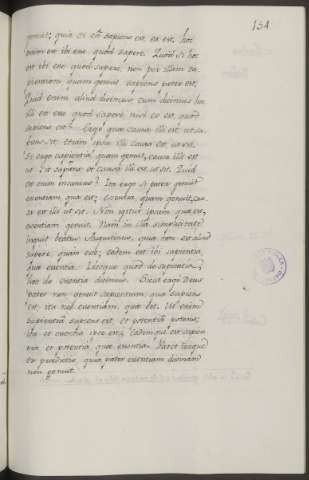 154
genuit; quia si eo sapiens est, ea est. hoc
enim est ibi esse quod sapere. Quod si hoc
est ibi esse quod sapere, non per illam sa-
pientiam, quam genuit sapiens pater est,
Quid enim aliud dicimus, cum dicimus hoc
illi est esse quod sapere, nisi eo est, quo
sapiens est? Ergo quæ causa illi est ut sa-
piens sit, etiam ipsa illi causa est, ut sit.
Si ergo sapientia, quam genuit, causa illi est
ut sit sapiens et causa illi est ut sit. Quid
Jam ergo si pater genuit
essentiam qua est; essentia, quam genuit, cau-
sa est illi ut sit. Non igitur ipsam qua est,
essentiam genuit. Nam in illa simplicitate
inquit beatus Augustinus, quia non est aliud
sapere, quam esse, eadem est ibi sapientia,
quæ essentia. Ideoque quod de sapientia,
hoc de essentia dicimus. Sicut ergo Deus
pater non genuit sapientiam, qua sapiens
est, ita nec essentiam, qua est. Ut enim
sapientia sapiens est, et potentia potens;
ita et essentia ipse est; eademque est sapien-
tia et potentia, quæ essentia. Patet itaque
ex prædictis, quia pater essentiam divinam
non genuit.